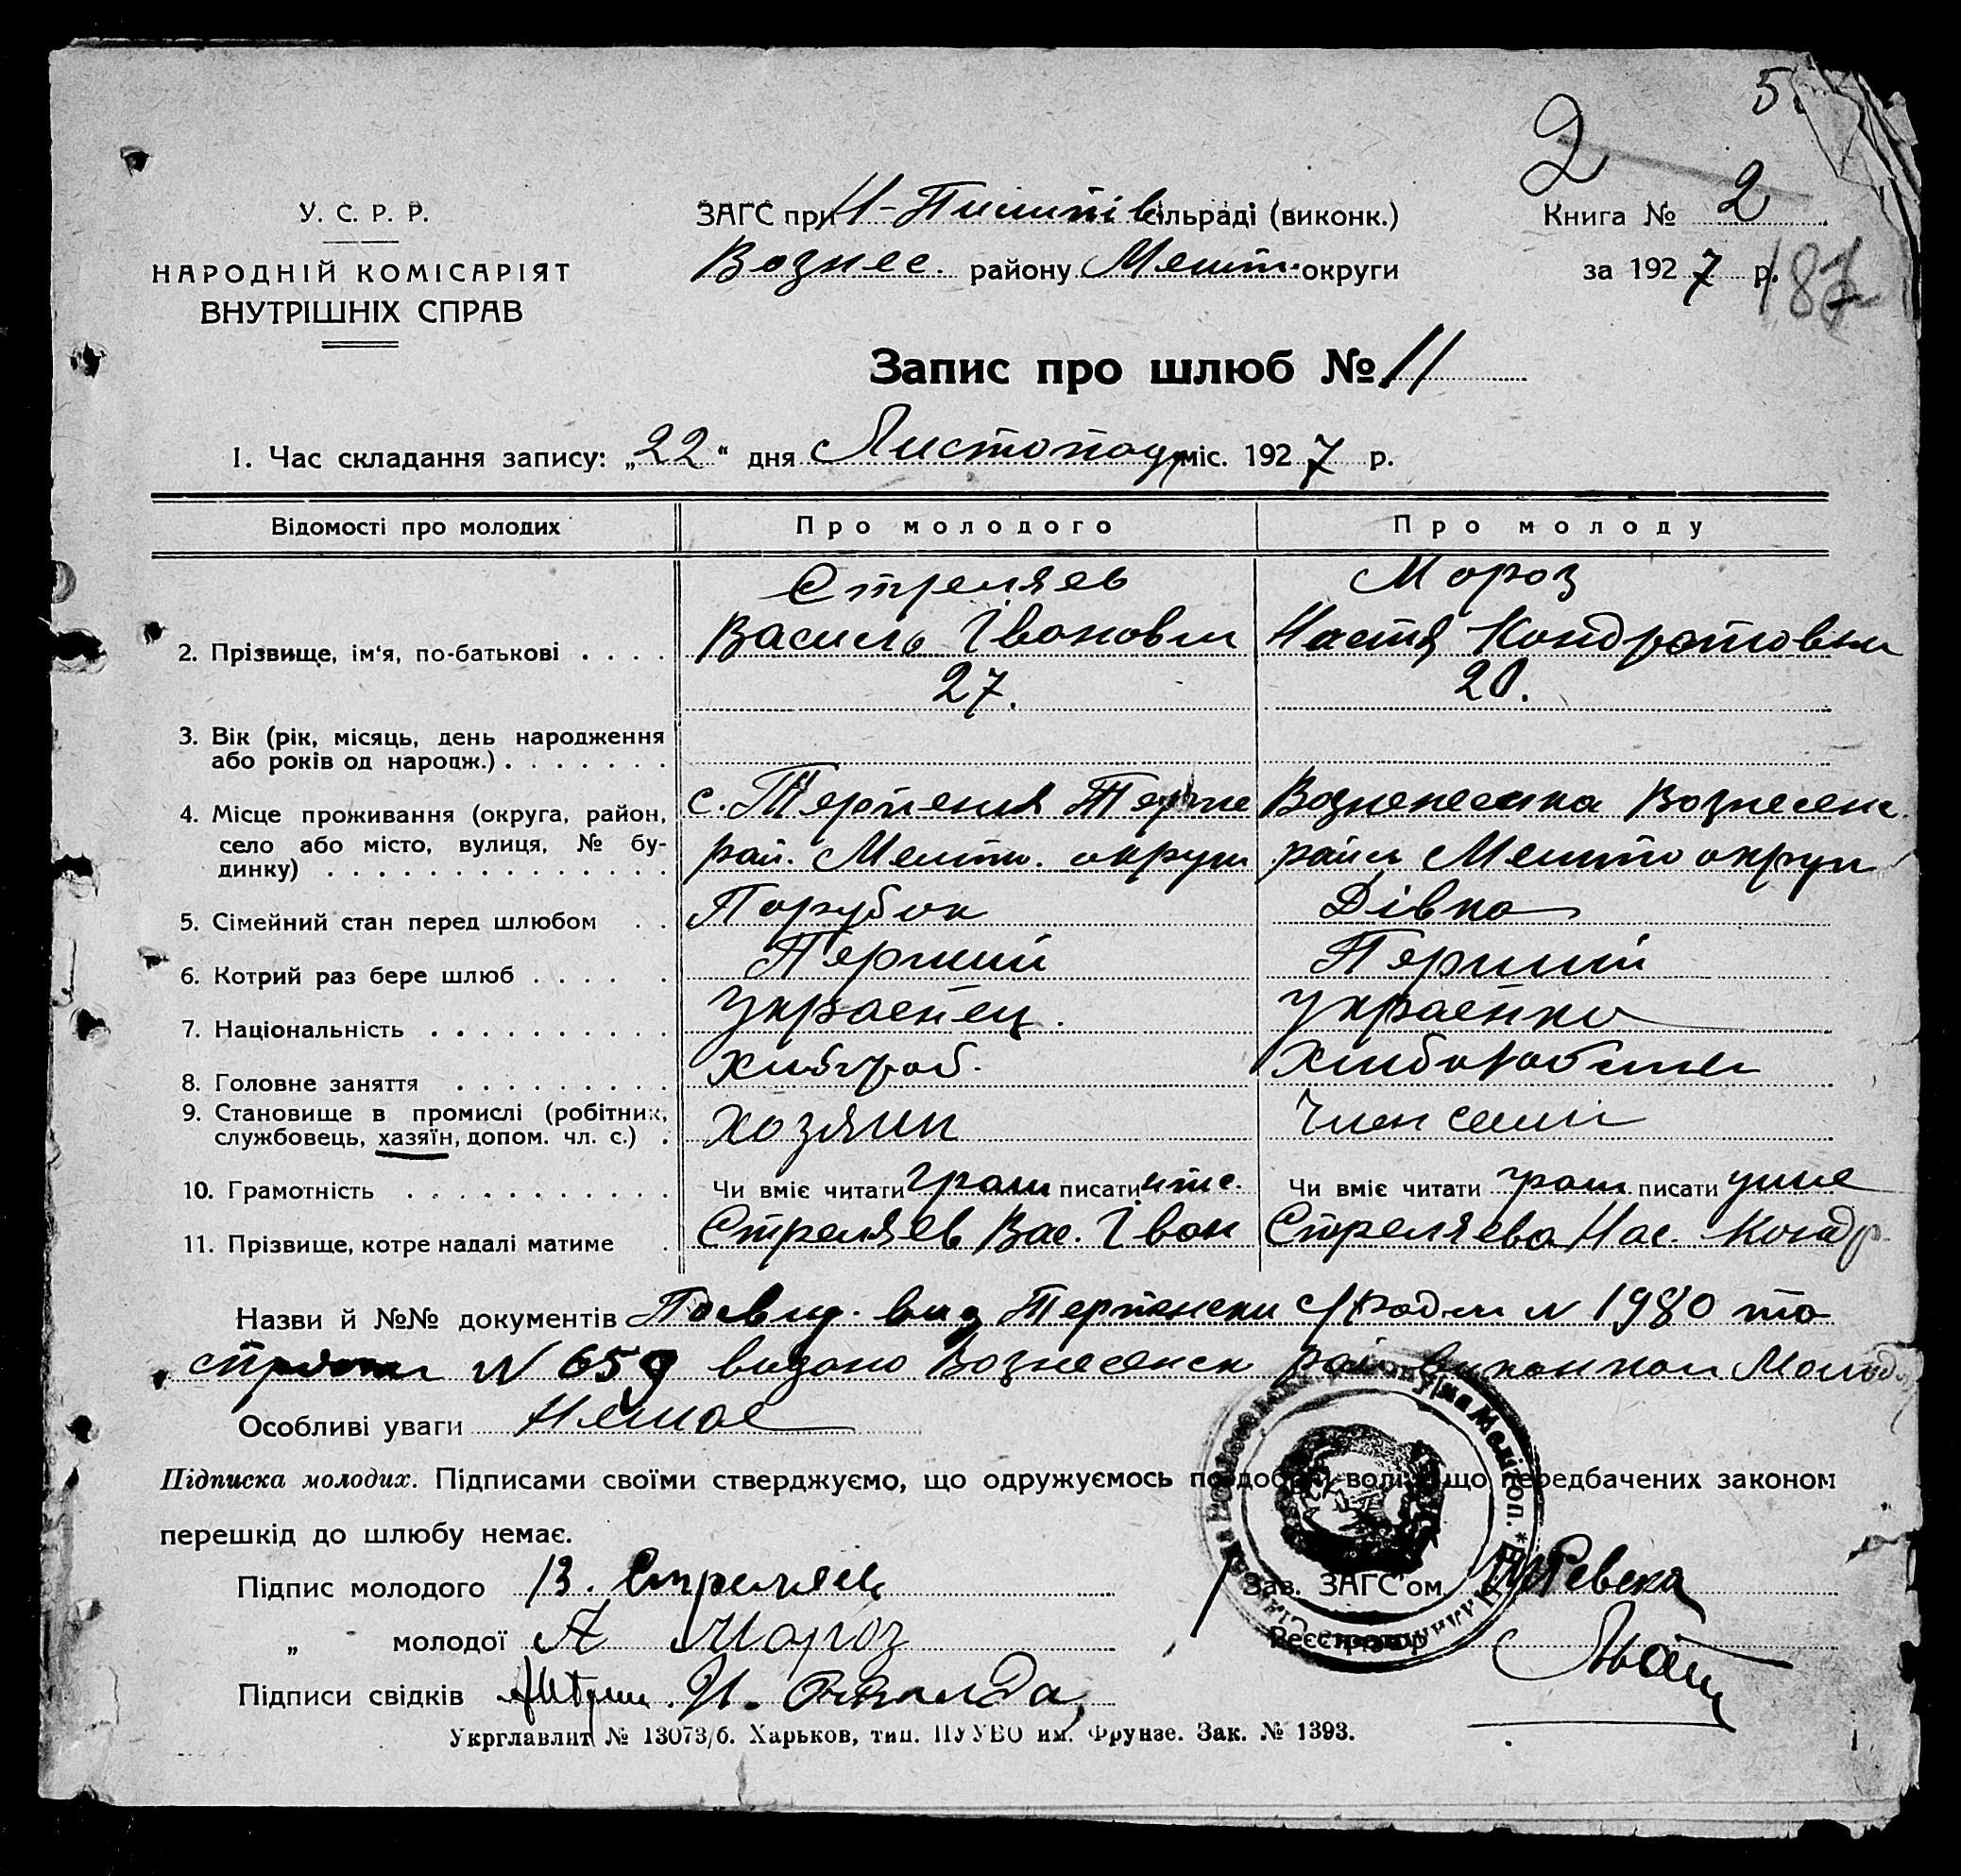 5
2
У. С. Р. Р.
НАРОДНІЙ КОМІСАРІЯТ
ВНУТРІШНІХ СПРАВ
ЗАГС при Н-Пилипів сільраді (виконк.)
Вознес. району Меліт. округи
Книга № 2
за 1927 р.
187
Запис про шлюб № 11
1. Час складання запису: „22" дня Листопад міс. 1927 р.
Відомості про молодих Про молодого Про молоду
Стреляєв Мороз
2. Прізвище, ім'я, по-батькові . . . . Василь Іванович Настя Кондратовна
27. 20.
3. Вік (рік, місяць, день народження
або років од народж.) . . . . . . .
4. Місце проживання (округа, район, с. Терпення Терпе Вознесенка Вознесенс.
село або місто, вулиця, № бу- рай. Меліт. округи району Меліт округи
динку) . . . . . . . . . . . . . .
5. Сімейний стан перед шлюбом . . Парубок Дівка
6. Котрий раз бере шлюб . . . . . Перший Перший
7. Національність . . . . . . . . . . Українец. Українка
8. Головне заняття . . . . . . . . . Хлібороб.
9. Становище в промислі (робітник, Хозяин Член семїі
службовець, хазяїн, допом. чл. с.) .
10. Грамотність . . . . . . . . . . . Чи вміє читати грам писати Чи вміє читати грам. писати уміє
11. Прізвище, котре надалі матиме . Стреляєв Вас. Іван Стреляєва Нас. Кондр.
Назви й №№ документів Посвід. від Терпенски N 1980 та
N 659 видано Вознесенск рай виконком
Особливі уваги Немає
Підписка молодих. Підписами своїми стверджуємо, що одружуємось по добрій волі й що передбачених законом
перешкід до шлюбу немає.
Підпис молодого В. Стреляєв
Зав. ЗАГС'ом
„ молодої А Мороз
Реєстратор
Підписи свідків
Укрглавлит № 13073/б. Харьков, тип. ПУУВО им. Фрунзе. Зак. № 1393.